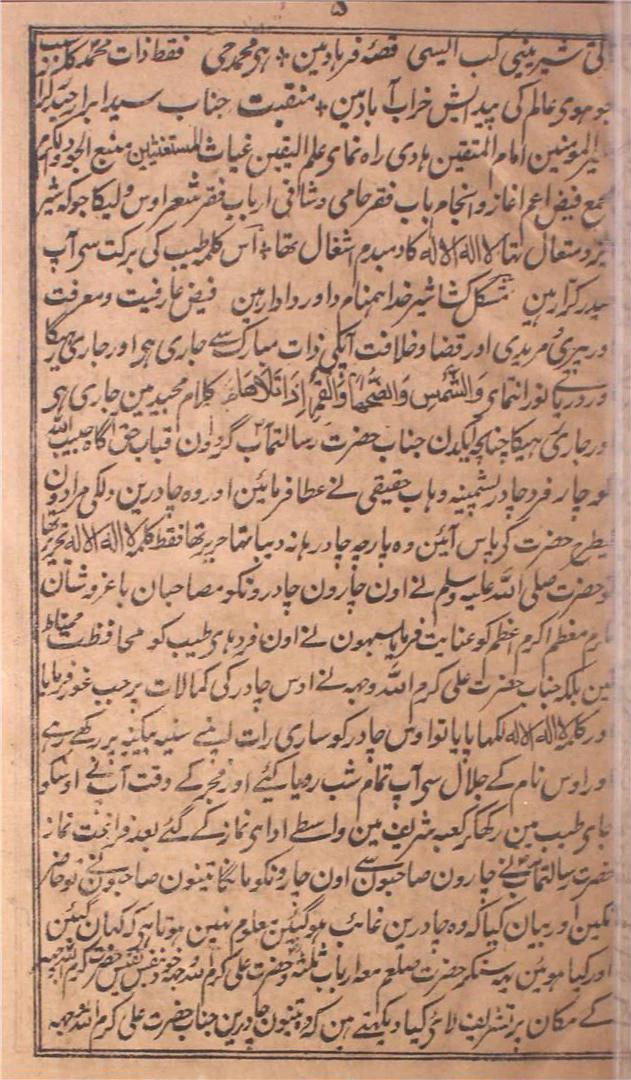 ۵
شیرینی کب ایسی قصۂ فرہادمین + ہی محمد حی فقط ذات محمد کلزبہ
جو ہوی عالم کی پیدایش خراب آبادمین + منقبت جناب سید ابرار حیدر
المومنین امام المتقین ہادی راہ نمای علم الیقین غیاث المستغیثین منبع الجود والکرم
فیض اعم اغاز و انجام باب فقر حامی و شافی ارباب فقر شعر اوس ولیکا جو کہ شیر
تہا لا الہ الا اللہ کا دمبدم اشغال تہا + اس کلمہ طیب کی برکت سی آپ
حیدر کرار ہین مشکل کشا شیر خدا ہمنام داور و ادار ہین فیض عارفیت و معرفت
و پیری مریدی اور قضا و خلافت آپکی ذات مبارک سے جاری ہوا اور جاری رہیگا
انتمای والشمس والضحہا والقمر اذا تلاہا کلام مجید مین جاری ہی
اور جاری رہیگا چنانچہ ایکدن جناب حضرت رسالتمآب گردون قباب حق آگاہ حبیب اللہ
کو چار فرد چادر پشمینہ وہاب حقیقی نے عطا فرمائین اور وہ چادرین دلکی مرادون
کیطرح حضرت کی پاس آئین وہ پارچہ چادر ہا نہ دیبا تہا حریر تہا فقط کلمہ لا الہ الا اللہ تحریر تہا
حضرت صلی اللہ علیہ وسلم نے اون چارون چادرونکو مصاحبان با عز و شان
معظم اکرم اعظم کو عنایت فرمایا سبہون نے اون فردہای طیب کو محافظت
بلکہ جناب حضرت علی کرم اللہ وجہہ نے اوس چادر کی کمالات پر جب غور فرمایا
اور کلمہ لا الہ الا اللہ لکہا پایا تو اوس چادر کو ساری رات اپنے سینہ بیکینہ پر رکھے رہے
اور اوس نام کے جلال سی آپ تمام شب رویا کیئے اور فجر کے وقت آپ نے اوسکو
جای طیب مین رکھکر کعبہ شریف مین واسطے ادای نماز کے گئے بعد فراغت نماز
حضرت رسالتمآب نے چارون صاحبون سے اون چارونکو مانگا تینون صاحبون نے تو حاضر
نکین اور بیان کیا کہ وہ چادرین غائب ہوگئین معلوم نہین ہوتا ہی کہ کہان گئین
اور کیا ہوئین یہہ سنکر حضرت صلعم معہ ارباب ثلثہ و حضرت علی کرم اللہ وجہہ خود بنفس نفیس حضرت کرم اللہ وجہہ
کے مکان پر تشریف لائی کیا دیکہتے ہین کہ وہ تینون چادرین جناب حضرت علی کرم اللہ وجہہ